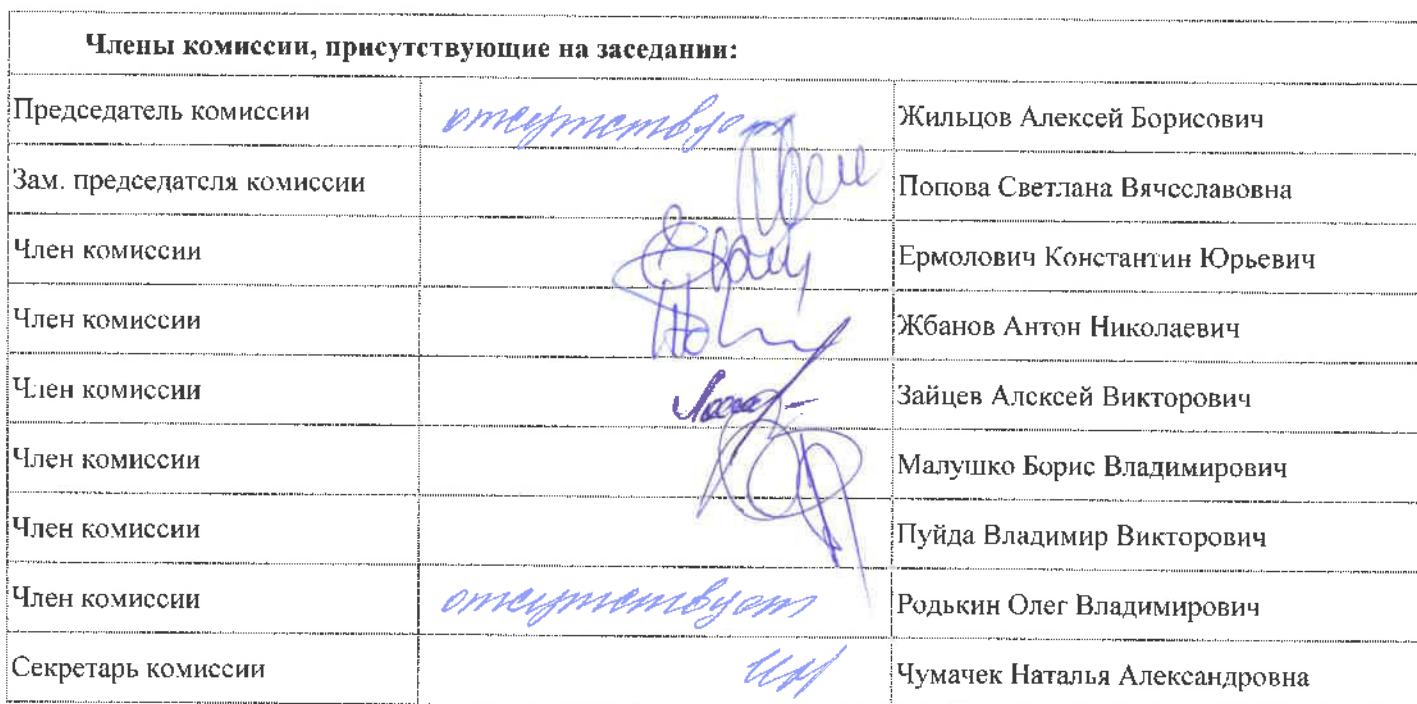 Члены комиссии, присутствующие на заседании:
Председатель комиссии отсутствует Жильцов Алексей Борисович
Зам. председателя комиссии Попова Светлана Вячеславовна
Член комиссии Ермолович Константин Юрьевич
Член комиссии Жбанов Антон Николаевич
Член комиссии Зайцев Алексей Викторович
Член комиссии Малушко Борис Владимирович
Член комиссии Пуйда Владимир Викторович
Член комиссии отсутствует Родькин Олег Владимирович
Секретарь комиссии Чумачек Наталья Александровна